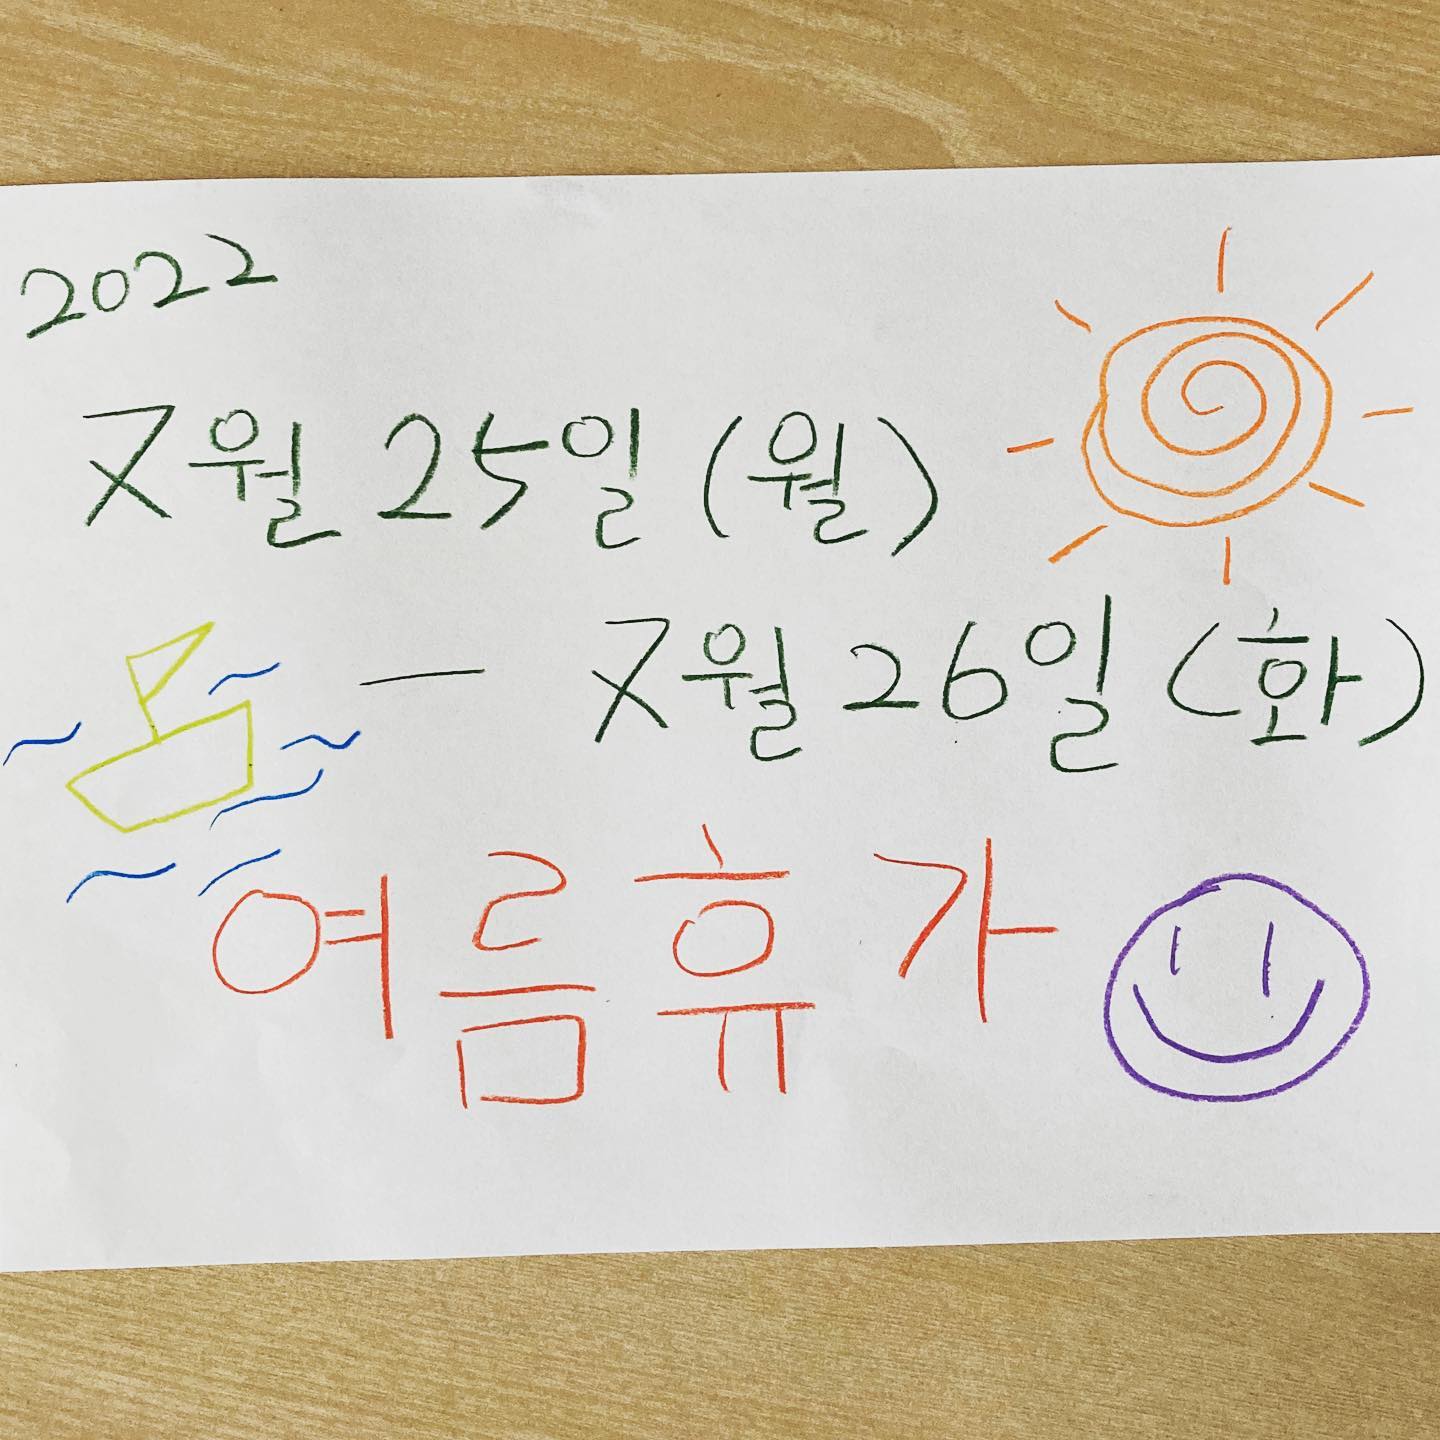 2022
7월 25일 (월)
— 7월 26일 (화)
여름휴가